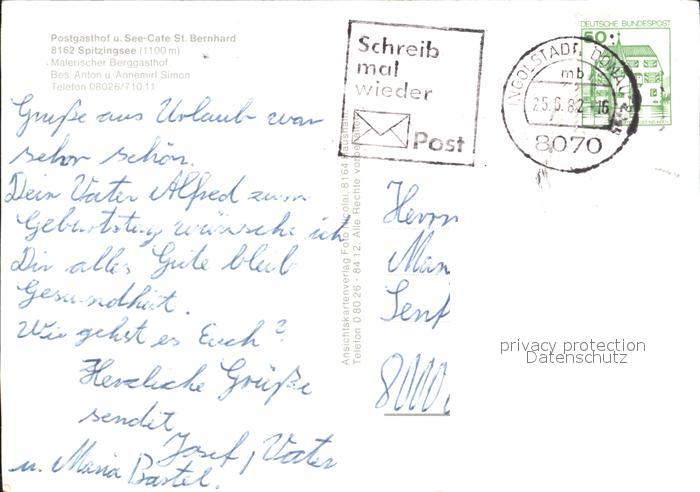 Postgasthof u. See-Cafe St. Bernhard
8162 Spitzingsee (1100 m)
Malerischer Berggasthof
Bes. Anton u. Annemirl Simon
Telefon 08026/710 11
Grüße aus Urlaub war
sehr schön.
Dein Vater Alfred zum
Geburtstag wünsche ich
Dir alles Gute bleib
Gesundheit.
Wie gehst es Euch?
Herzliche Grüße
sendet
Josef, Vater
u. Maria Bastel.
Schreib
mal
wieder
Post
INGOLSTADT, DONAU
mb
25.6.82-16
8070
DEUTSCHE BUNDESPOST
50
Ansichtskartenverlag Foto Nicolai, 8164 Hausham
Telefon 0 80 26 - 84 12. Alle Rechte vorbehalten
Herrn
Man
Senf
8000
privacy protection
Datenschutz